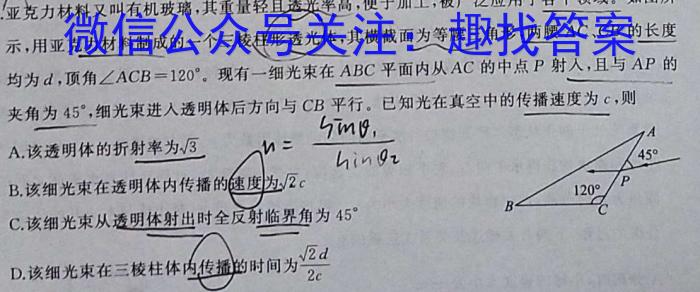 .亚克力材料又叫有机玻璃,其重量轻且透光率高,便于加工,被广泛应用于各个领域。如图所
微信公众号关注：趣找答案
示,用亚克力材料制成的一个三棱柱形透光体,其横截面为等腰三角形,两腰AC、CB的长度
均为d,顶角∠ACB=120°。现有一细光束在ABC平面内从AC的中点P射入,且与AP的
夹角为45°,细光束进入透明体后方向与CB平行。已知光在真空中的传播速度为c,则
A.该透明体的折射率为√3
n = sinθ₁ / sinθ₂
B.该细光束在透明体内传播的速度为√2c
C.该细光束从透明体射出时全反射临界角为45°
D.该细光束在三棱柱体内传播的时间为√2d/2c
A
45°
P
120°
B
C